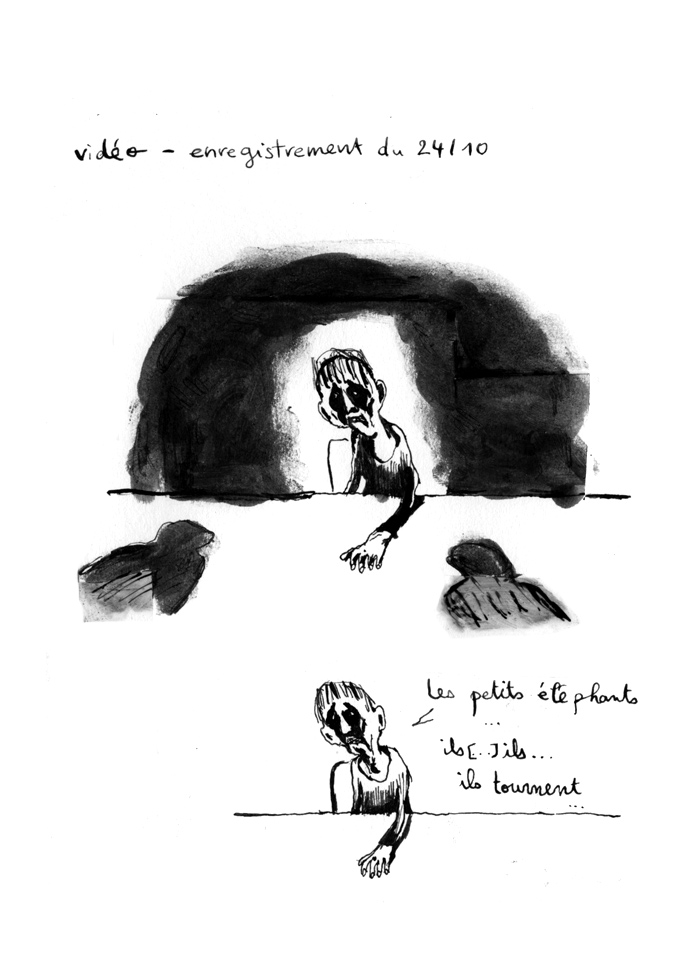 vidéo - enregistrement du 24/10
les petits éléphants
...
ils[...]ils...
ils tournent
...